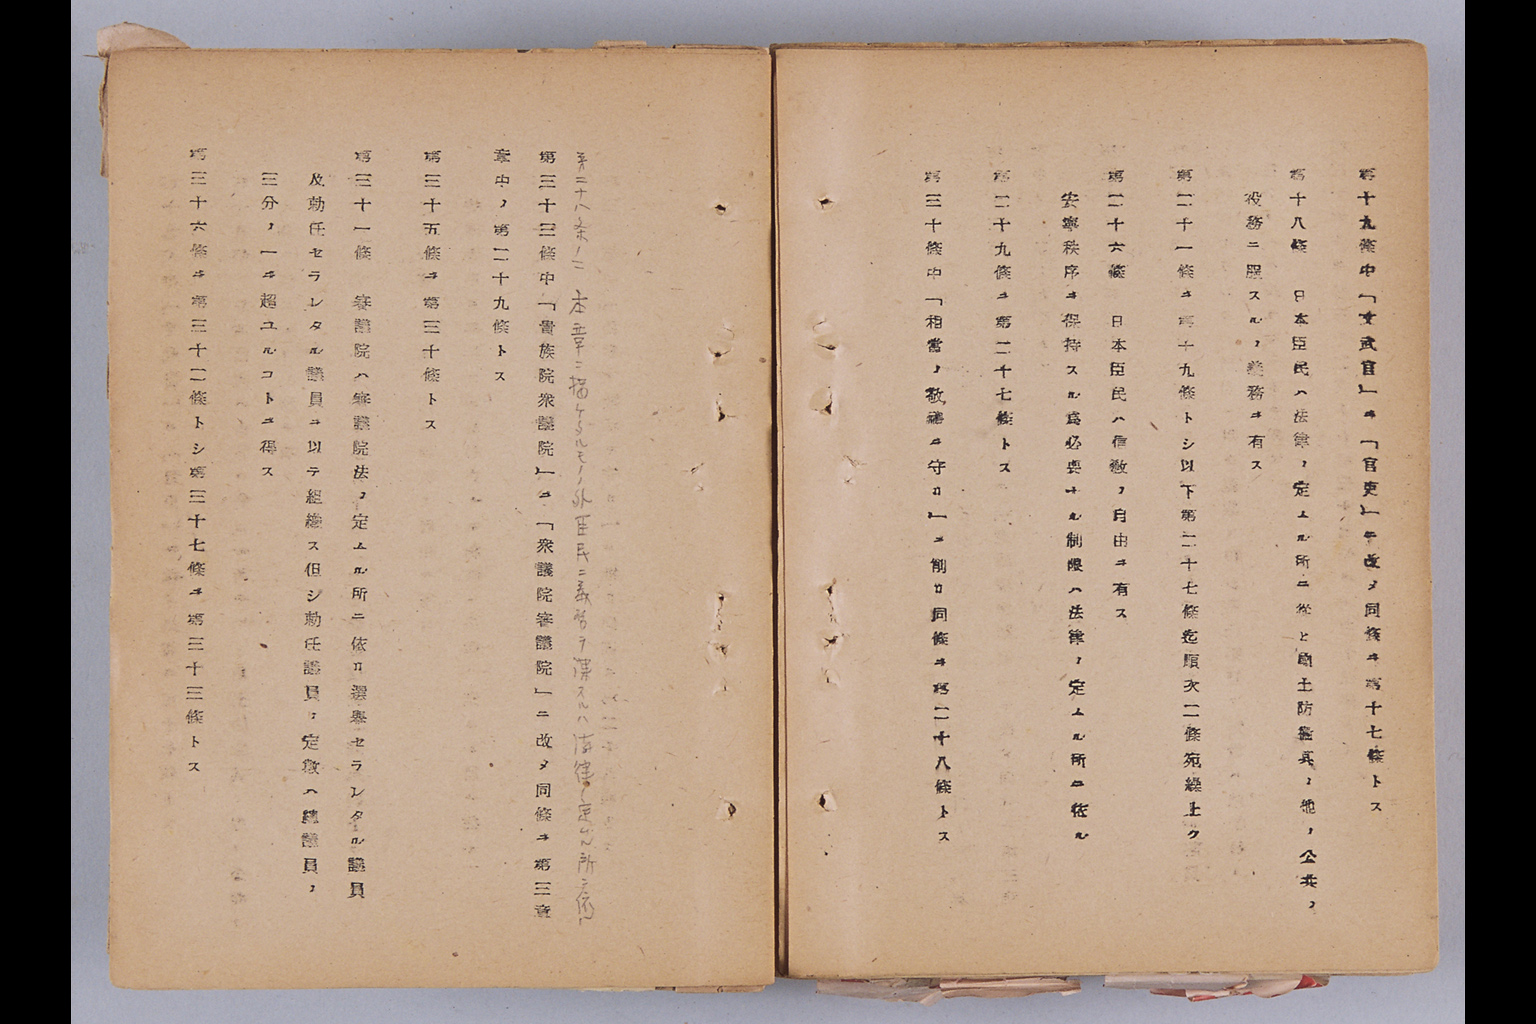 第十九條中「文武官」ヲ「官吏」ニ改メ同條ヲ第十七條トス
第十八條　日本臣民ハ法律ノ定ムル所ニ從ヒ國土防衞其ノ他ノ公共ノ
役務ニ服スルノ義務ヲ有ス
第二十一條ヲ第十九條トシ以下第二十七條迄順次二條宛繰上ク
第二十六條　日本臣民ハ信敎ノ自由ヲ有ス
安寧秩序ヲ保持スル爲必要ナル制限ハ法律ノ定ムル所ニ依ル
第二十九條ヲ第二十七條トス
第三十條中「相當ノ敬禮ヲ守リ」ヲ削リ同條ヲ第二十八條トス
第二十八条ノ二　本章ニ掲ケタルモノノ外臣民ニ義務ヲ課スルハ法律ノ定ムル所ニ依ル
第三十三條中「貴族院衆議院」ヲ「衆議院審議院」ニ改メ同條ヲ第三章
章中ノ第二十九條トス
第三十五條ヲ第三十條トス
第三十一條　審議院ハ審議院法ノ定ムル所ニ依リ選擧セラレタル議員
及勅任セラレタル議員ヲ以テ組織ス但シ勅任議員ノ定數ハ總議員ノ
三分ノ一ヲ超ユルコトヲ得ス
第三十六條ヲ第三十二條トシ第三十七條ヲ第三十三條トス